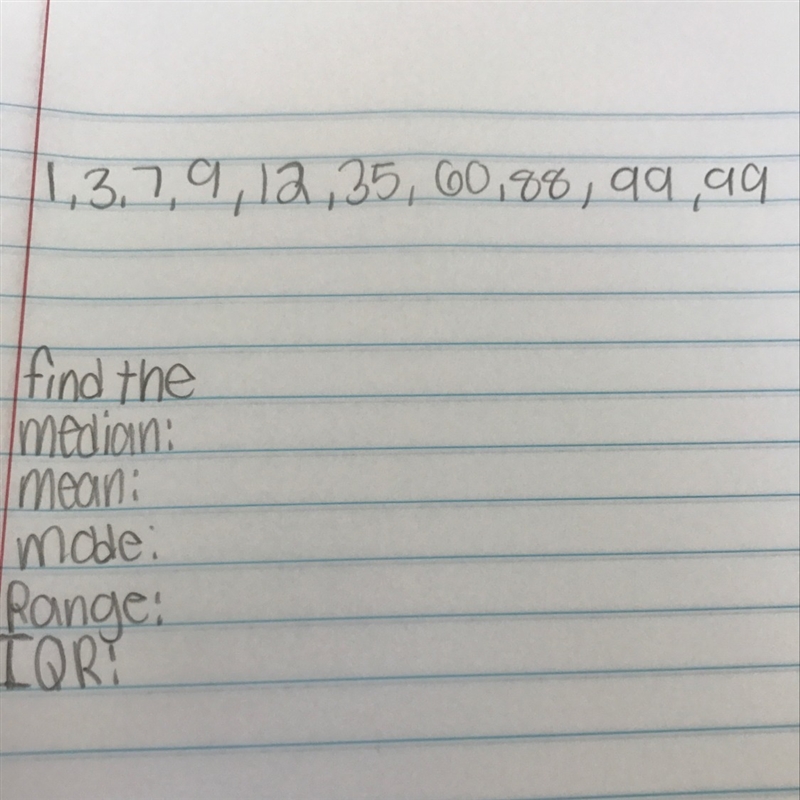 1, 3, 7, 9, 12, 35, 60, 88, 99, 99
find the
median:
mean:
mode:
Range:
IQR: